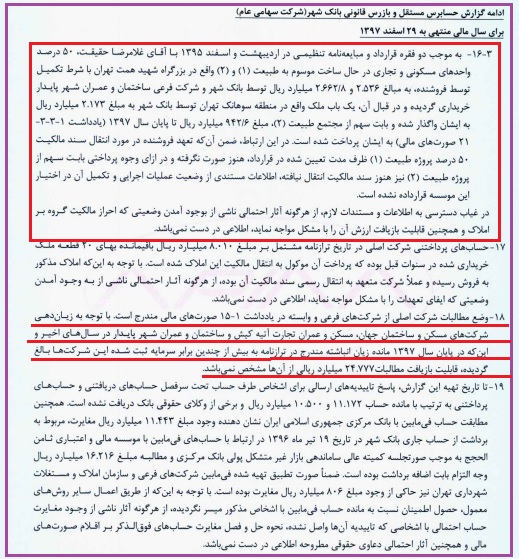 ادامه گزارش حسابرس مستقل و بازرس قانونی بانک شهر(شرکت سهامی عام)
برای سال مالی منتهی به ۲۹ اسفند ۱۳۹۷
۱۶-۳- به موجب دو فقره قرارداد و مبایعه‌نامه تنظیمی در اردیبهشت و اسفند ۱۳۹۵ با آقای غلامرضا حقیقت، ۵۰ درصد
واحدهای مسکونی و تجاری در حال ساخت موسوم به طبیعت (۱) و (۲) واقع در بزرگراه شهید همت تهران با شرط تکمیل
توسط فروشنده، به مبالغ ۲.۵۳۶ و ۲.۶۶۲/۸ میلیارد ریال توسط بانک شهر و شرکت فرعی ساختمان و عمران شهر پایدار
خریداری گردیده و در قبال آن، یک باب ملک واقع در منطقه سوهانک تهران توسط بانک شهر به مبلغ ۲.۱۷۳ میلیارد ریال
به ایشان واگذار شده و بابت سهم از مجتمع طبیعت (۲)، مبلغ ۹۴۲/۶ میلیارد ریال تا پایان سال ۱۳۹۷ (یادداشت ۱-۳-۳-
۲۱ صورت‌های مالی) به ایشان پرداخت شده است. در این ارتباط، ضمن آن‌که تعهد فروشنده در مورد انتقال سند مالکیت
۵۰ درصد پروژه طبیعت (۱) ظرف مدت تعیین شده در قرارداد، هنوز صورت نگرفته و در ازای وجوه پرداختی بابت سهم از
پروژه طبیعت (۲) نیز هنوز سند مالکیت انتقال نیافته، اطلاعات مستندی از وضعیت عملیات اجرایی و تکمیل آن در اختیار
این موسسه قرارداده نشده است.
در غیاب دسترسی به اطلاعات و مستندات لازم، از هرگونه آثار احتمالی ناشی از بوجود آمدن وضعیتی که احراز مالکیت گروه بر
املاک و همچنین قابلیت بازیافت ارزش آن را با مشکل مواجه نماید، اطلاعی در دست نمی‌باشد.
۱۷- حساب‌های پرداختنی شرکت اصلی در تاریخ ترازنامه مشتمل بر مبلغ ۸.۰۱۰ میلیارد ریال باقیمانده بهای ۲۰ قطعه ملک
خریداری شده در سنوات قبل بوده که پرداخت آن موکول به انتقال مالکیت این املاک شده است. با توجه به این‌که املاک مذکور
به فروش رسیده و عملاً شرکت متعهد به انتقال رسمی سند مالکیت آن بوده، از هرگونه آثار احتمالی ناشی از به وجود آمدن
وضعیتی که ایفای تعهدات را با مشکل مواجه نماید، اطلاعی در دست نمی‌باشد.
۱۸- وضع مطالبات شرکت اصلی از شرکت‌های فرعی و وابسته در یادداشت ۱-۱۵ صورت‌های مالی مندرج است. با توجه به زیان‌دهی
شرکت‌های مسکن و ساختمان جهان، مسکن و عمران تجارت آتیه کیش و ساختمان و عمران شهر پایدار در سال‌های اخیر و
این‌که در پایان سال ۱۳۹۷ مانده زیان انباشته مندرج در ترازنامه به بیش از چندین برابر سرمایه ثبت شده این شرکت‌ها بالغ
گردیده، قابلیت بازیافت مطالبات ۲۴.۷۷۷ میلیارد ریالی از آن‌ها مشخص نمی‌باشد.
۱۹- تا تاریخ تهیه این گزارش، پاسخ تاییدیه‌های ارسالی برای اشخاص طرف حساب تحت سرفصل حساب‌های دریافتنی و حساب‌های
پرداختنی به ترتیب با مانده حساب ۱۱.۱۷۲ و ۱۰.۵۰۰ میلیارد ریال و برخی از وکلای حقوقی بانک دریافت نشده است. همچنین
مطابقت حساب فی‌مابین با بانک مرکزی جمهوری اسلامی ایران نشان دهنده وجود مبلغ ۱۱.۴۴۳ میلیارد ریال مغایرت، مربوط به
برداشت از حساب جاری بانک شهر در تاریخ ۱۹ تیر ماه ۱۳۹۶ در ارتباط با حساب‌های فی‌مابین با موسسه مالی و اعتباری ثامن
الحجج به موجب صورتجلسه کمیته عالی ساماندهی بازار غیر متشکل پولی بانک مرکزی و مطالبه مبلغ ۱۶.۲۱۶ میلیارد ریال
وجه التزام بابت اضافه برداشت بوده است. ضمناً صورت تطبیق تهیه شده فی‌مابین شرکت‌های فرعی و سازمان املاک و مستغلات
شهرداری تهران نیز حاکی از وجود مبلغ ۸۰۶ میلیارد ریال مغایرت بوده است. با توجه به این‌که از طریق اعمال سایر روش‌های
معمول، حصول اطمینان نسبت به مانده حساب فی‌مابین با اشخاص مذکور میسر نگردیده، از هرگونه آثار ناشی از وجود مغایرت
حساب احتمالی با اشخاصی که تاییدیه آن‌ها واصل نشده، نحوه حل و فصل مغایرت حساب‌های فوق‌الذکر بر اقلام صورت‌های
مالی و همچنین آثار احتمالی دعاوی حقوقی مطروحه اطلاعی در دست نمی‌باشد.